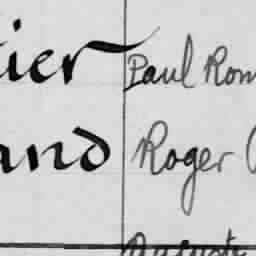 ier Paul Rom
and Roger
Auguste